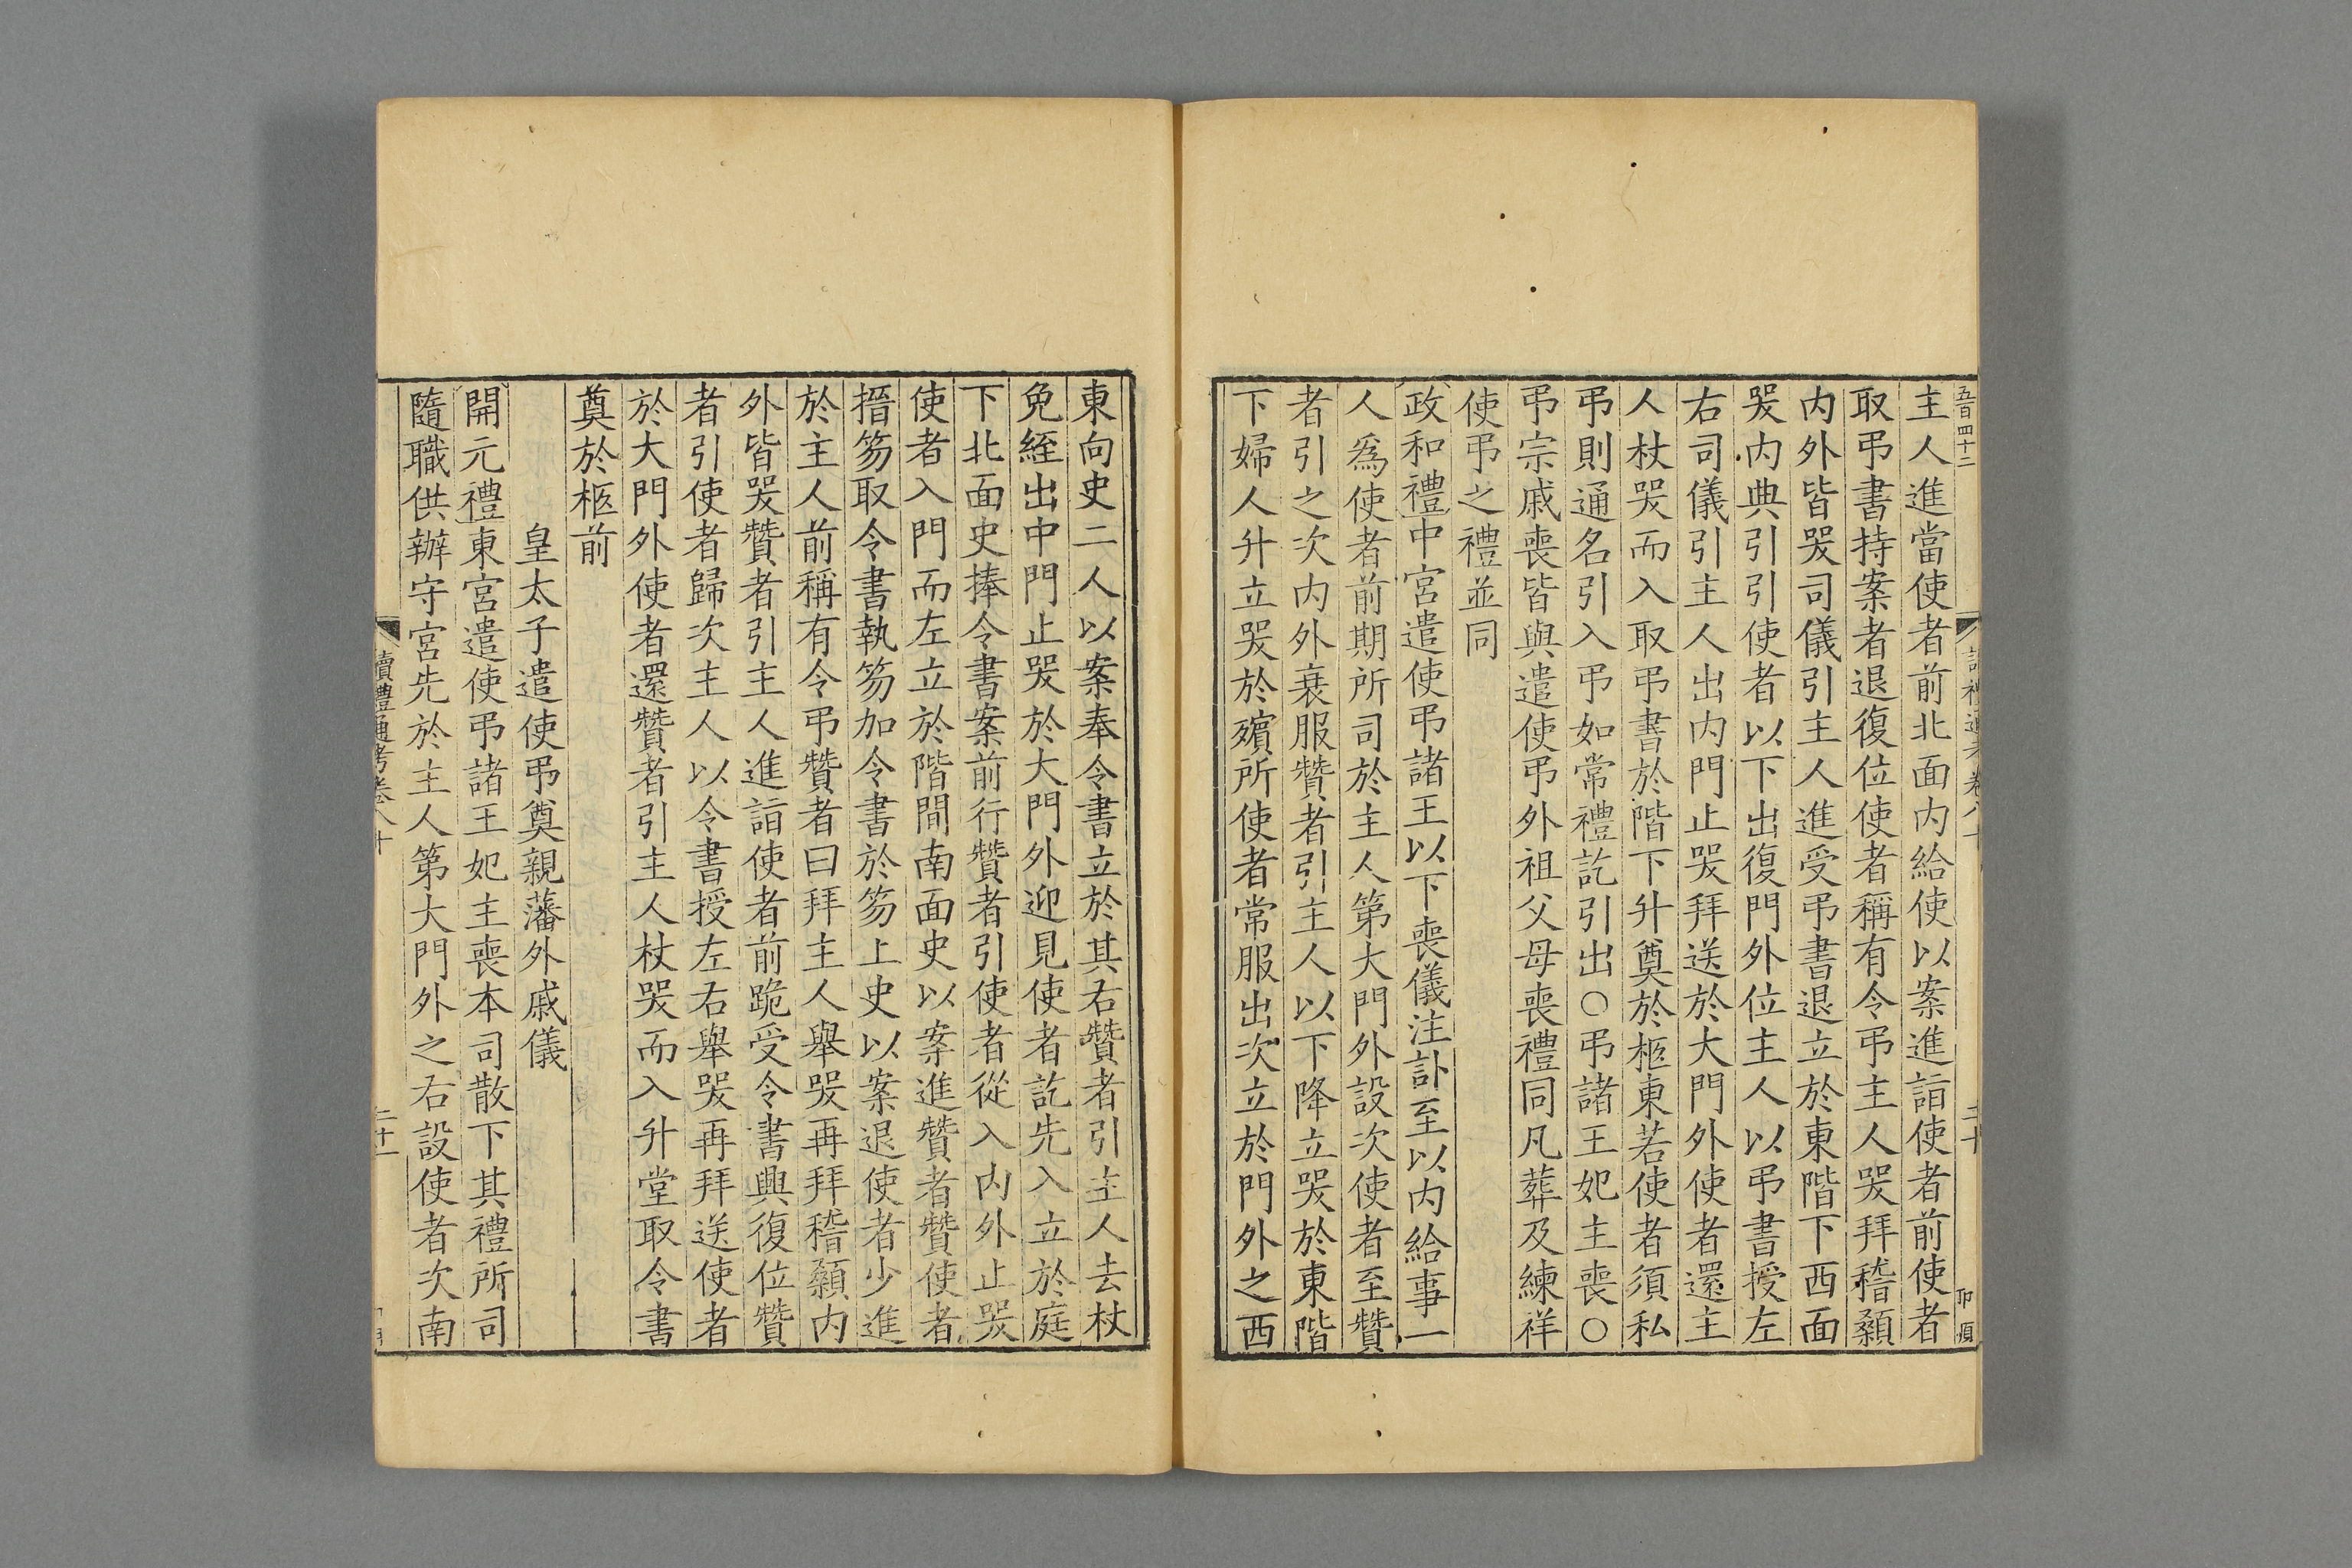 五百四十二
讀禮通考卷八十
二十
主人進當使者前北面内給使以案進詣使者前使者
取弔書持案者退復位使者稱有令弔主人哭拜稽顙
内外皆哭司儀引主人進受弔書退立於東階下西面
哭内典引引使者以下出復門外位主人以弔書授左
右司儀引主人出内門止哭拜送於大門外使者還主
人杖哭而入取弔書於階下升奠於柩東若使者須私
弔則通名引入弔如常禮訖引出○弔諸王妃主喪○
弔宗戚喪皆與遣使弔外祖父母喪禮同凡葬及練祥
使弔之禮並同
政和禮中宮遣使弔諸王以下喪儀注訃至以内給事一
人爲使者前期所司於主人第大門外設次使者至贊
者引之次内外衰服贊者引主人以下降立哭於東階
下婦人升立哭於殯所使者常服出次立於門外之西
東向史二人以案奉令書立於其右贊者引主人去杖
免絰出中門止哭於大門外迎見使者訖先入立於庭
下北面史捧令書案前行贊者引使者從入内外止哭
使者入門而左立於階間南面史以案進贊者贊使者
搢笏取令書執笏加令書於笏上史以案退使者少進
於主人前稱有令弔贊者曰拜主人舉哭再拜稽顙内
外皆哭贊者引主人進詣使者前跪受令書興復位贊
者引使者歸次主人以令書授左右舉哭再拜送使者
於大門外使者還贊者引主人杖哭而入升堂取令書
奠於柩前
皇太子遣使弔奠親藩外戚儀
開元禮東宮遣使弔諸王妃主喪本司散下其禮所司
隨職供辦守宮先於主人第大門外之右設使者次南
讀禮通考卷八十
二十一